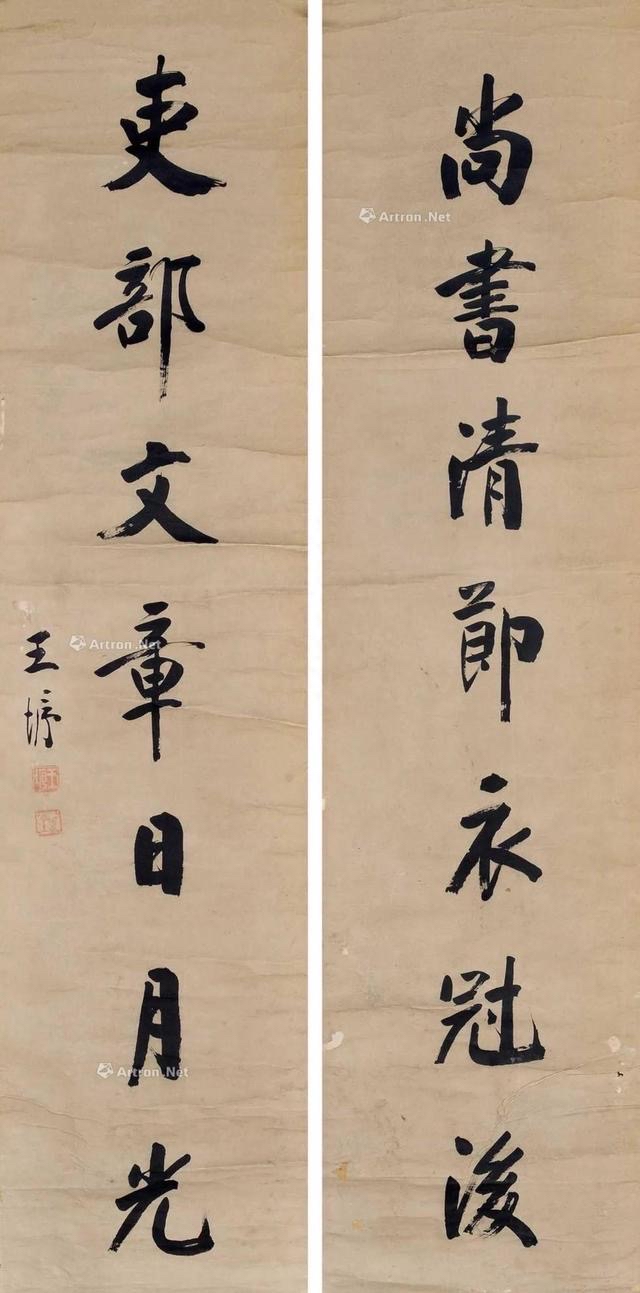 尚書清節衣冠後
Artron.Net
吏部文章日月光
Artron.Net
Artron.Net
王垿